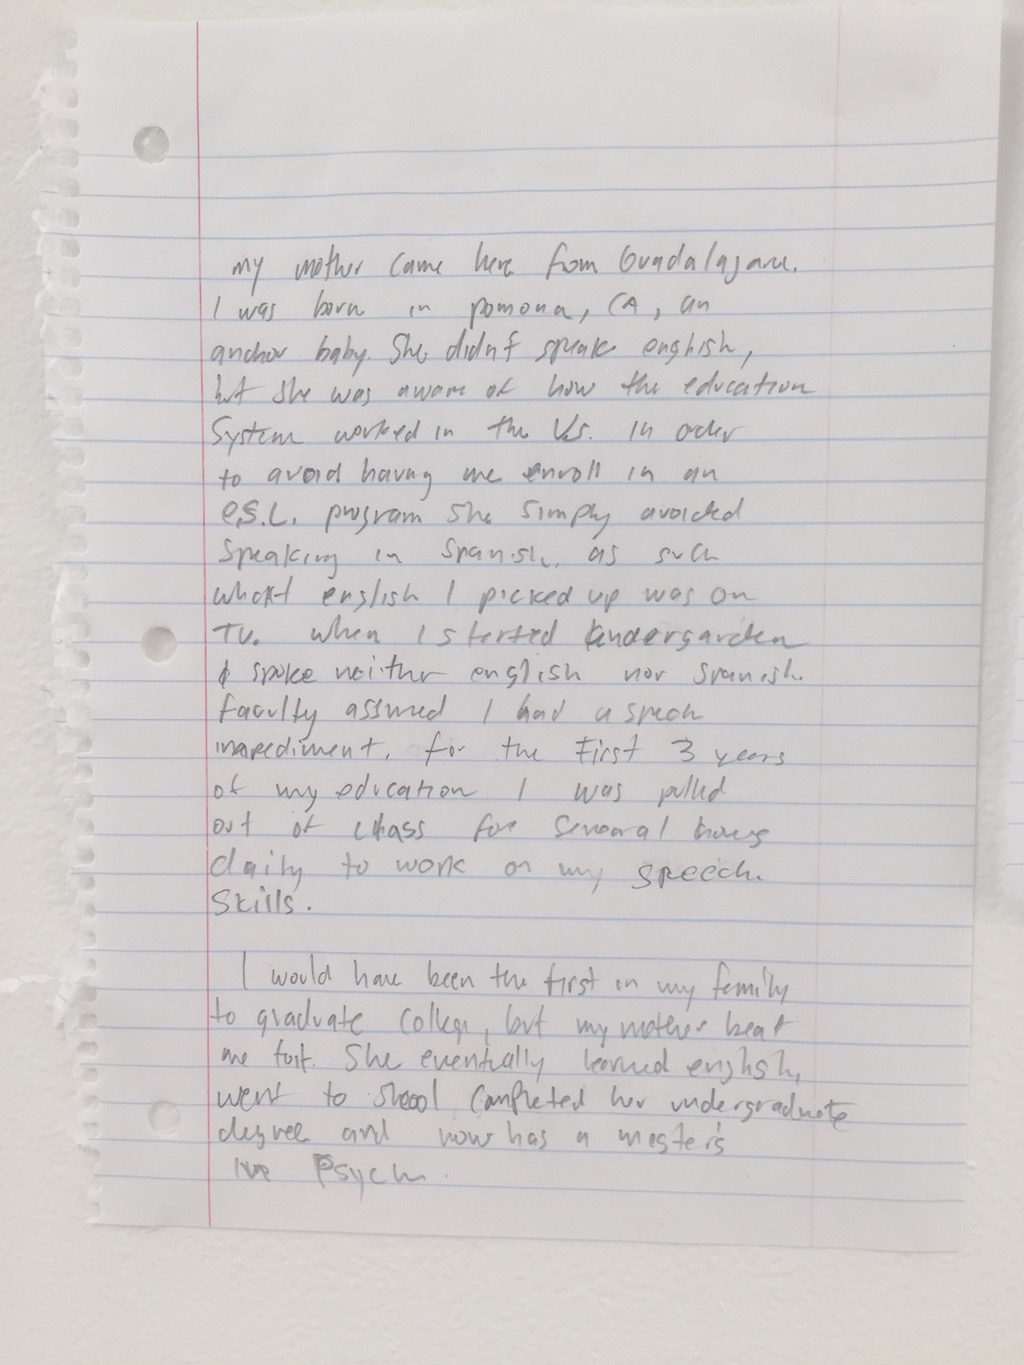 my mother came here from Guadalajara.
I was born in pomona, CA, an
anchor baby. She didn't speak english,
but she was aware of how the education
System worked in the U.S. In order
to avoid having me enroll in an
e.S.L. program she simply avoided
speaking in Spanish. as such
what english I picked up was on
TV. when I started kindergarden
I spoke neither english nor spanish.
faculty assumed I had a speech
impediment. for the first 3 years
of my education I was pulled
out of class for several hours
daily to work on my speech
skills.
I would have been the first in my family
to graduate college, but my mother beat
me to it. She eventually learned english,
went to shcool completed her undergraduate
degree and now has a master's
in Psych.